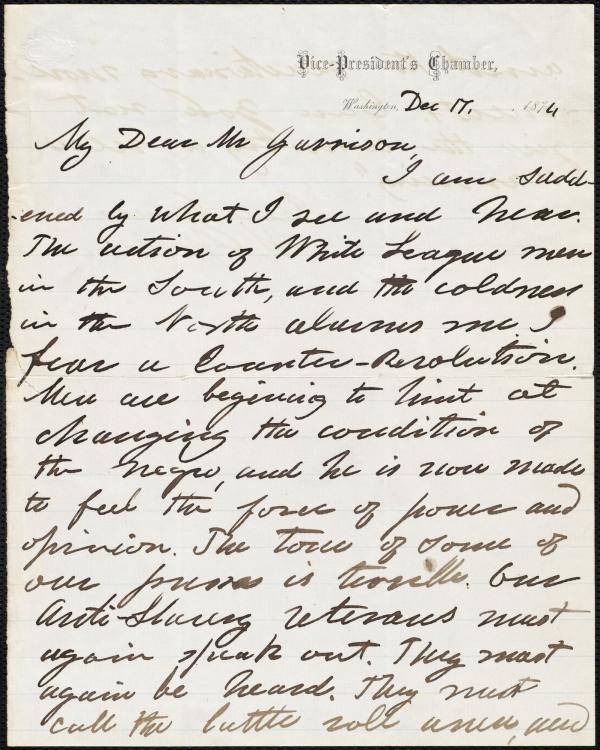 Vice-President's Chamber,
Washington, Dec 17. 1874
My Dear Mr Garrison,
I am sadd-
ened by what I see and hear.
The action of White League men
in the South, and the coldness
in the North alarms me. I
fear a Counter-Revolution.
Men are begining to hint at
changing the condition of
the negro, and he is now made
to feel the force of power and
opinion. The tone of some of
our press is terrible. Our
Anti-Slavery veterans must
again speak out. They must
again be heard. They must
call the battle roll anew, and